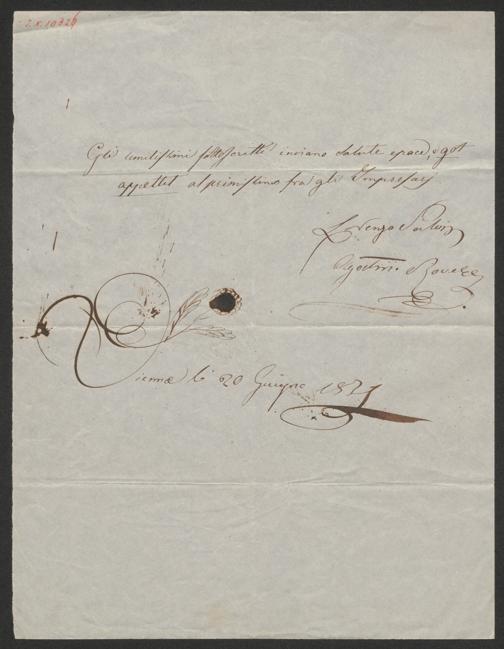 Gli umilissimi sottoscritti inviano salute e pace, e got
appettet al primissimo fra gli Impresarj
Lorenzo
Agostin. Rovere
Vienna li 20 Giugno 182